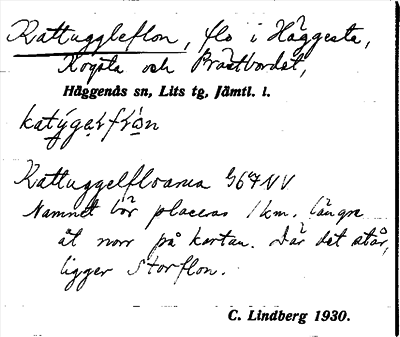 Kattuggleflon, flo i Häggesta,
Kogsta och Prästbordet,
Häggenås sn, Lits tg, Jämtl. l.
Kattuggelfloarna 367 NV
Namnet bör placeras 1 km. längre
åt norr på kartan. Där det står,
ligger Storflon.
C. Lindberg 1930.